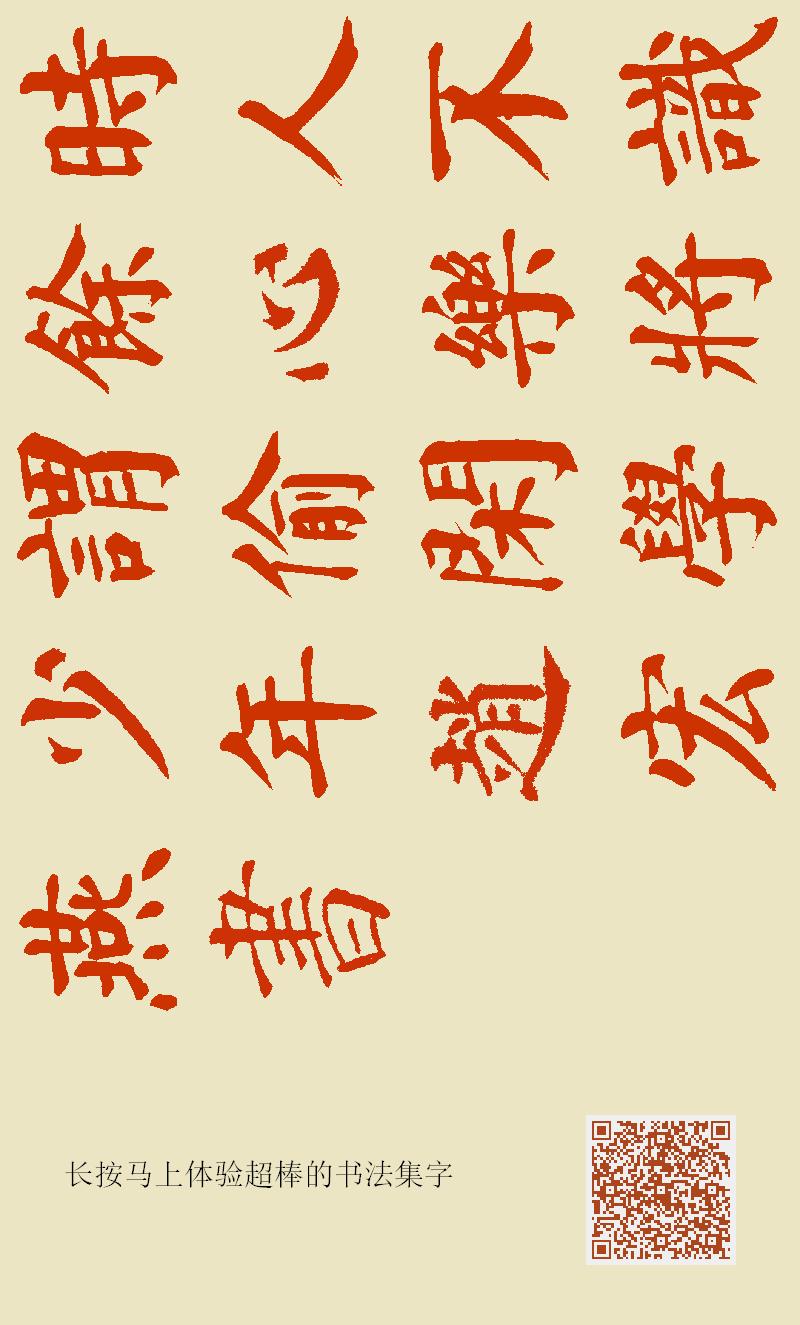 時人不識
餘心樂將
謂偷閑學
少年趙宏
燕書
长按马上体验超棒的书法集字